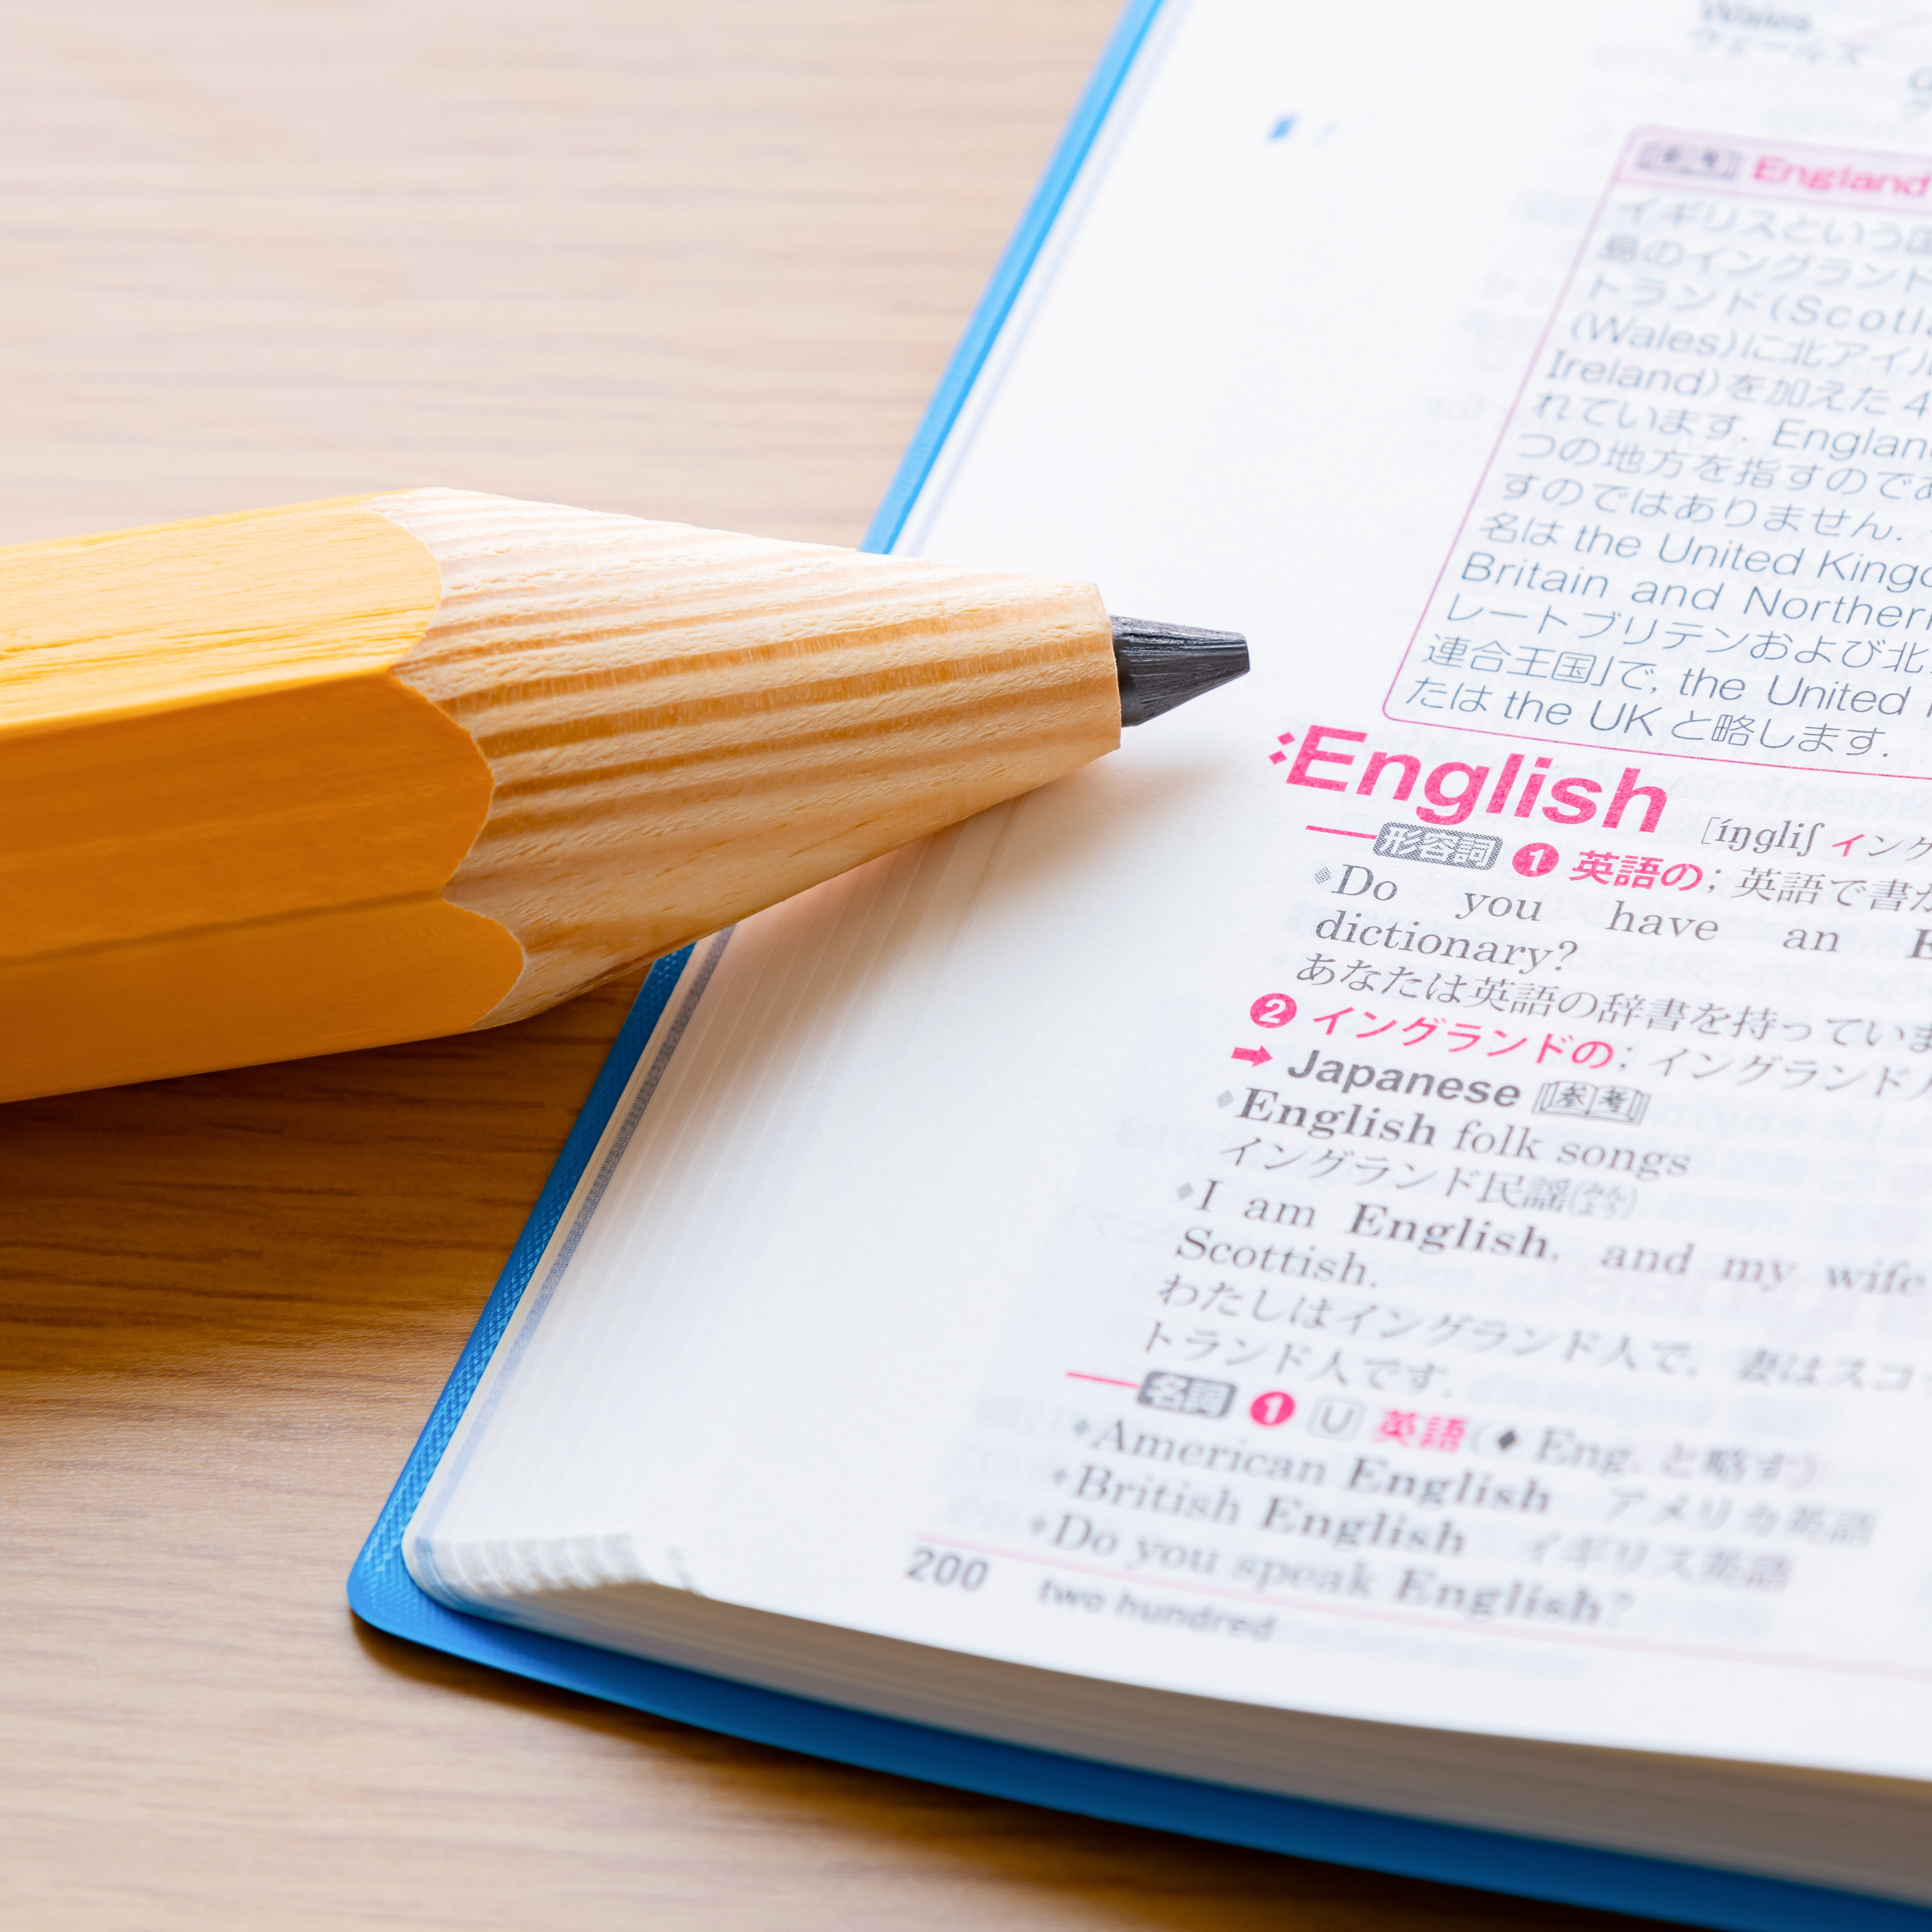 Wales
ウェールズ
参考 England
イギリスという国
島のイングランド
トランド(Scotla
(Wales)に北アイル
Ireland)を加えた4
れています. Englan
つの地方を指すのであ
すのではありません.
名は the United Kingd
Britain and Northern
レートブリテンおよび北
連合王国」で, the United
たは the UK と略します.
English [íŋgliʃ イング
形容詞 ❶ 英語の; 英語で書か
Do you have an E
dictionary?
あなたは英語の辞書を持っていま
❷ イングランドの; イングランド人
➡ Japanese 参考
English folk songs
イングランド民謡(みんよう)
I am English, and my wife
Scottish.
わたしはイングランド人で, 妻はスコ
トランド人です.
名詞 ❶ U 英語(♦ Eng. と略す)
American English アメリカ英語
British English イギリス英語
Do you speak English?
200 two hundred